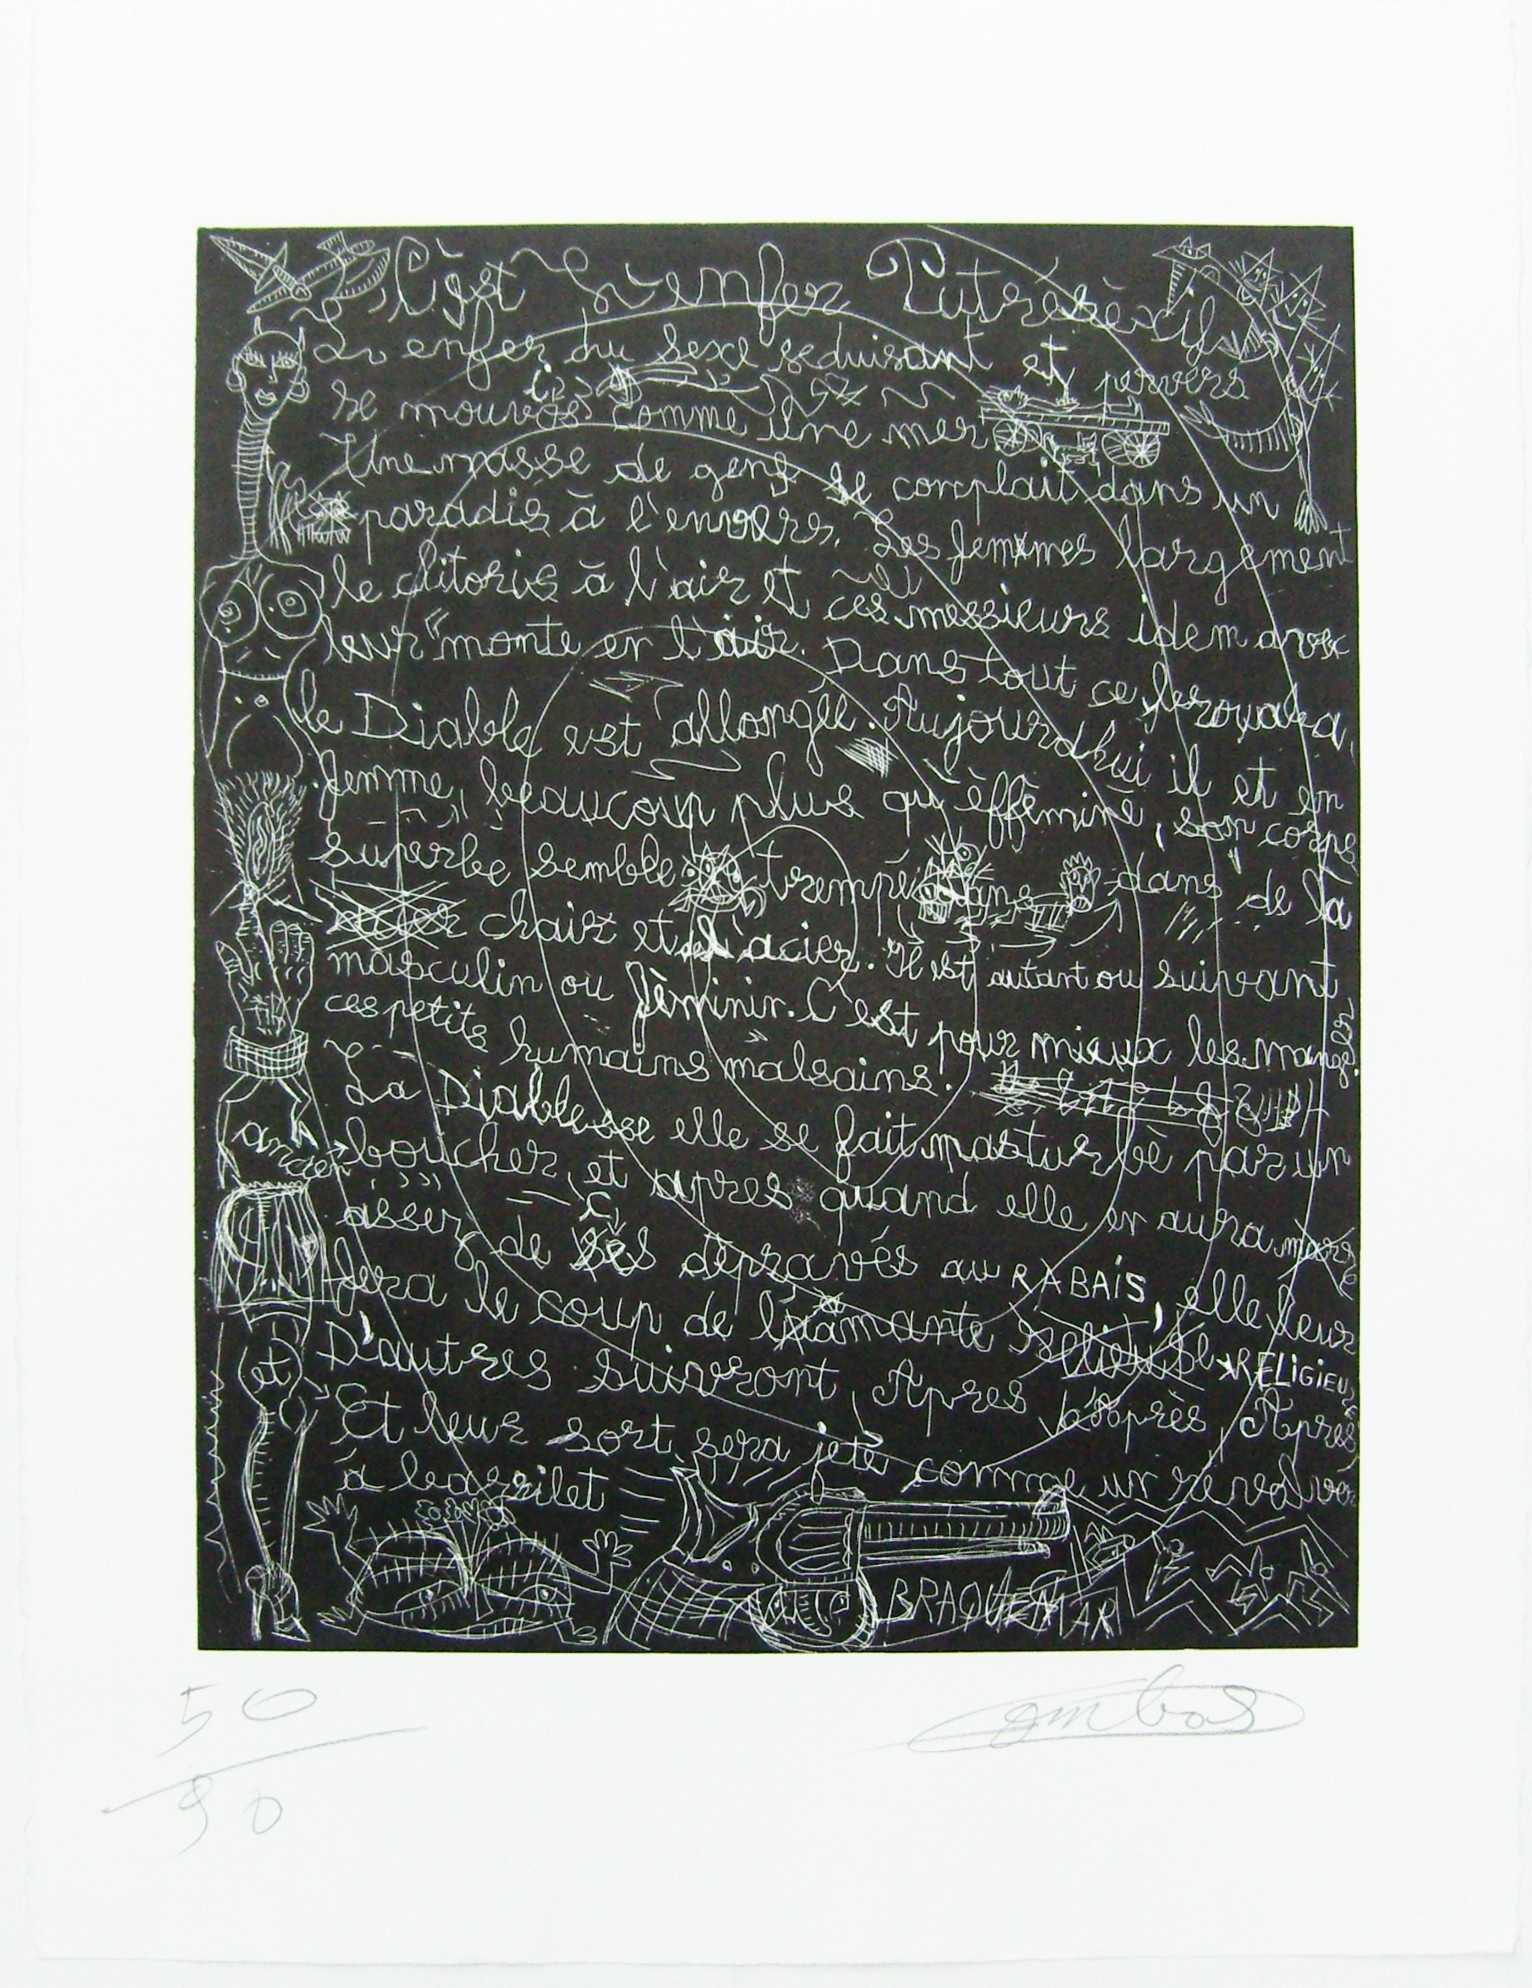 C'est L'enfer Putrésèxif
L'enfer du sexe seduisant et pervers
se mouvoir comme une mer
Une masse de gens se complait dans un
paradis à l'envers. Les femmes largement
le clitoris à l'air et ces messieurs idem avec
leur "monte en l'air. Dans tout ce
le Diable est allongée. Aujourdhui il et en
femme, beaucoup plus qu'èffèminè, son corps
superbe semble trempé dans de la
chair et l'acier. Il est autant ou suivant
masculin ou fèminin. C'est pour mieux les manger
ces petits humains malsains!
La Diablesse elle se fait masturbè par un
ancien boucher, et apres quand elle en aura marre
assez de ces dèpravés au RABAIS, elle leur
fera le coup de l'amante RELIGIEUSE
D'autres suivront Apres Après Apres
et
Et leur sort sera jeté comme un revolver
à barrilet
BRAQUEMAR
50/90
Combas